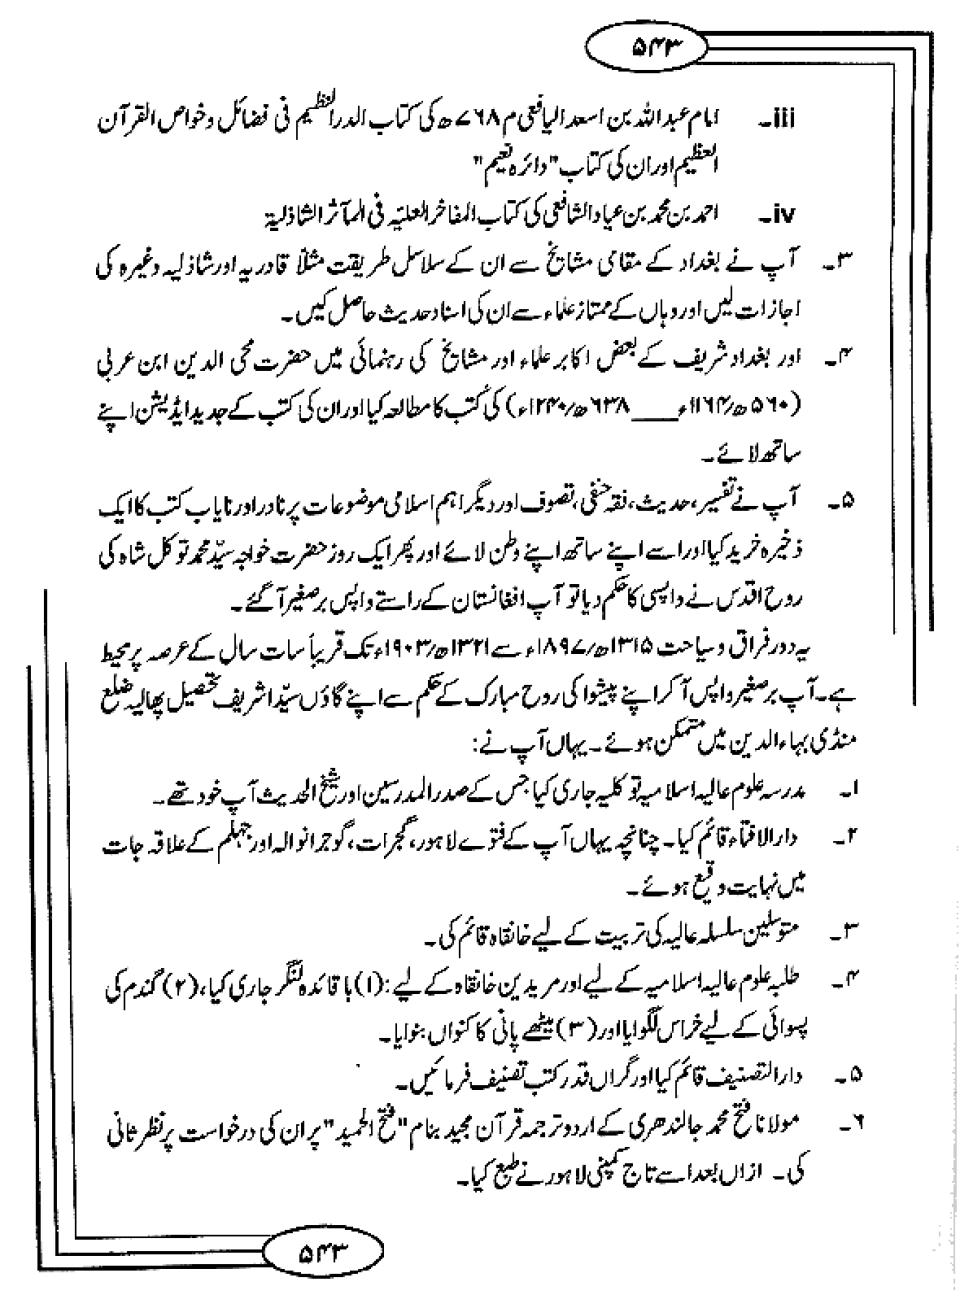 ۵۴۳
iii۔ امام عبداللہ بن اسعد الیافعی م ۷۶۸ھ کی کتاب الدر النظیم فی فضائل وخواص القرآن
العظیم اور ان کی کتاب "دائرہ نعیم"
iv۔ احمد بن محمد بن عباد الشافعی کی کتاب المفاخر العلیہ فی المآثر الشاذلیة
۳۔ آپ نے بغداد کے مقامی مشایخ سے ان کے سلاسل طریقت مثلاً قادریہ اور شاذلیہ وغیرہ کی
اجازات لیں اور وہاں کے ممتاز علماء سے ان کی اسناد حدیث حاصل کیں۔
۴۔ اور بغداد شریف کے بعض اکابر علماء اور مشایخ کی رہنمائی میں حضرت محی الدین ابن عربی
(۵۶۰ھ/۱۱۶۴ء ___ ۶۳۸ھ/۱۲۴۰ء) کی کتب کا مطالعہ کیا اور ان کی کتب کے جدید ایڈیشن اپنے
ساتھ لائے۔
۵۔ آپ نے تفسیر، حدیث، فقہ حنفی، تصوف اور دیگر اہم اسلامی موضوعات پر نادر اور نایاب کتب کا ایک
ذخیرہ خرید کیا اور اسے اپنے ساتھ اپنے وطن لائے اور پھر ایک روز حضرت خواجہ سیّد محمد توکل شاہ کی
روح اقدس نے واپسی کا حکم دیا تو آپ افغانستان کے راستے واپس برصغیر آ گئے۔
یہ دور فراق و سیاحت ۱۳۱۵ھ/۱۸۹۷ء سے ۱۳۲۱ھ/۱۹۰۳ء تک قریباً سات سال کے عرصہ پر محیط
ہے۔ آپ برصغیر واپس آ کر اپنے پیشوا کی روح مبارک کے حکم سے اپنے گاؤں سیّدا شریف تحصیل پھالیہ ضلع
منڈی بہاء الدین میں متمکن ہوئے۔ یہاں آپ نے:
۱۔ مدرسہ علوم عالیہ اسلامیہ توکلیہ جاری کیا جس کے صدر المدرسین اور شیخ الحدیث آپ خود تھے۔
۲۔ دار الافتاء قائم کیا۔ چنانچہ یہاں آپ کے فتوے لاہور، گجرات، گوجرانوالہ اور جہلم کے علاقہ جات
میں نہایت وقیع ہوئے۔
۳۔ متوسلین سلسلہ عالیہ کی تربیت کے لیے خانقاہ قائم کی۔
۴۔ طلبہ علوم عالیہ اسلامیہ کے لیے اور مریدین خانقاہ کے لیے: (۱) باقائدہ لنگر جاری کیا، (۲) گندم کی
پسوائی کے لیے خراس لگوایا اور (۳) میٹھے پانی کا کنواں بنوایا۔
۵۔ دار التصنیف قائم کیا اور گراں قدر کتب تصنیف فرمائیں۔
۶۔ مولانا فتح محمد جالندھری کے اردو ترجمہ قرآن مجید بنام "فتح الحمید" پر ان کی درخواست پر نظر ثانی
کی۔ ازاں بعد اسے تاج کمپنی لاہور نے طبع کیا۔
۵۴۳